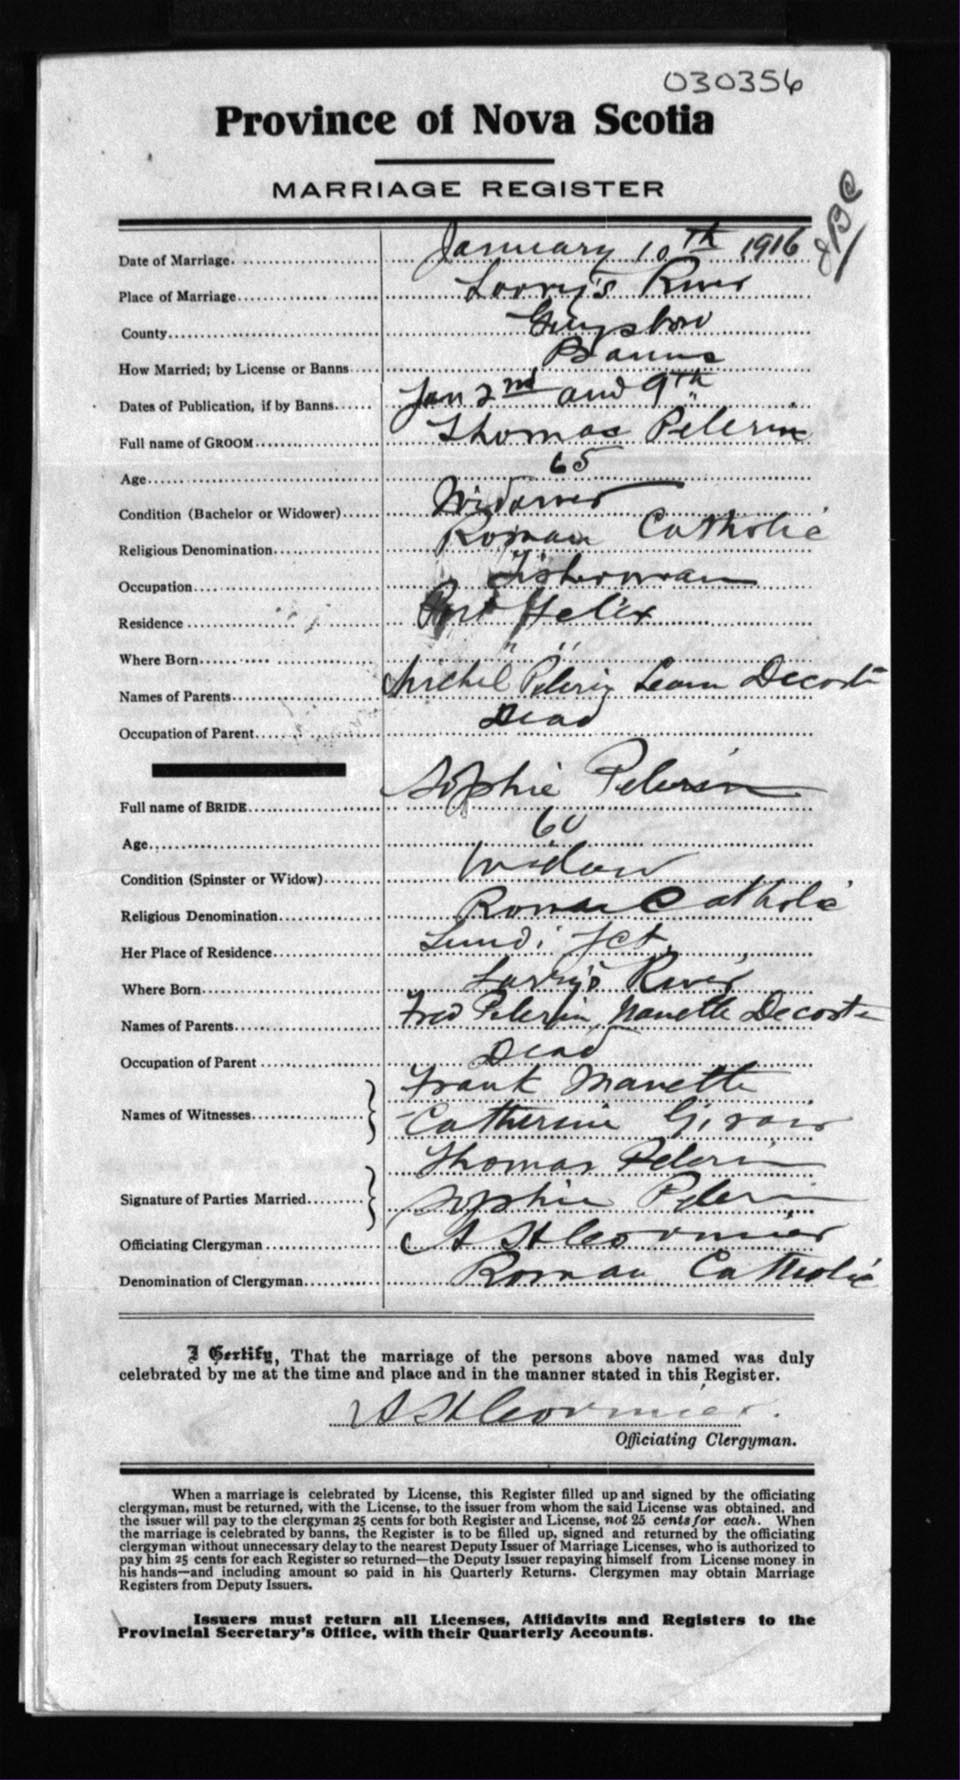 030356
Province of Nova Scotia
MARRIAGE REGISTER
Date of Marriage. January 10th 1916
Place of Marriage Larry's River
County Guysboro
How Married; by License or Banns Banns
Dates of Publication, if by Banns Jan 2nd and 9th
Full name of GROOM Thomas Pelerin
Age 65
Condition (Bachelor or Widower) Widower
Religious Denomination Roman Catholic
Occupation Fisherman
Residence Port Felix
Where Born " "
Names of Parents Michel Pelerin Decoste
Occupation of Parent Dead
Full name of BRIDE Sophie Pelerin
Age 60
Condition (Spinster or Widow) Widow
Religious Denomination Roman Catholic
Her Place of Residence
Where Born Larry's River
Names of Parents Fred Pelerin, Nanette Decoste
Occupation of Parent Dead
Names of Witnesses Frank Manette
Catherine
Signature of Parties Married Thomas Pelerin
Sophie Pelerin
Officiating Clergyman A H Cormier
Denomination of Clergyman Roman Catholic
I Certify, That the marriage of the persons above named was duly
celebrated by me at the time and place and in the manner stated in this Register.
A H Cormier.
Officiating Clergyman.
When a marriage is celebrated by License, this Register filled up and signed by the officiating
clergyman, must be returned, with the License, to the issuer from whom the said License was obtained, and
the issuer will pay to the clergyman 25 cents for both Register and License, not 25 cents for each. When
the marriage is celebrated by banns, the Register is to be filled up, signed and returned by the officiating
clergyman without unnecessary delay to the nearest Deputy Issuer of Marriage Licenses, who is authorized to
pay him 25 cents for each Register so returned—the Deputy Issuer repaying himself from License money in
his hands—and including amount so paid in his Quarterly Returns. Clergymen may obtain Marriage
Registers from Deputy Issuers.
Issuers must return all Licenses, Affidavits and Registers to the
Provincial Secretary's Office, with their Quarterly Accounts.